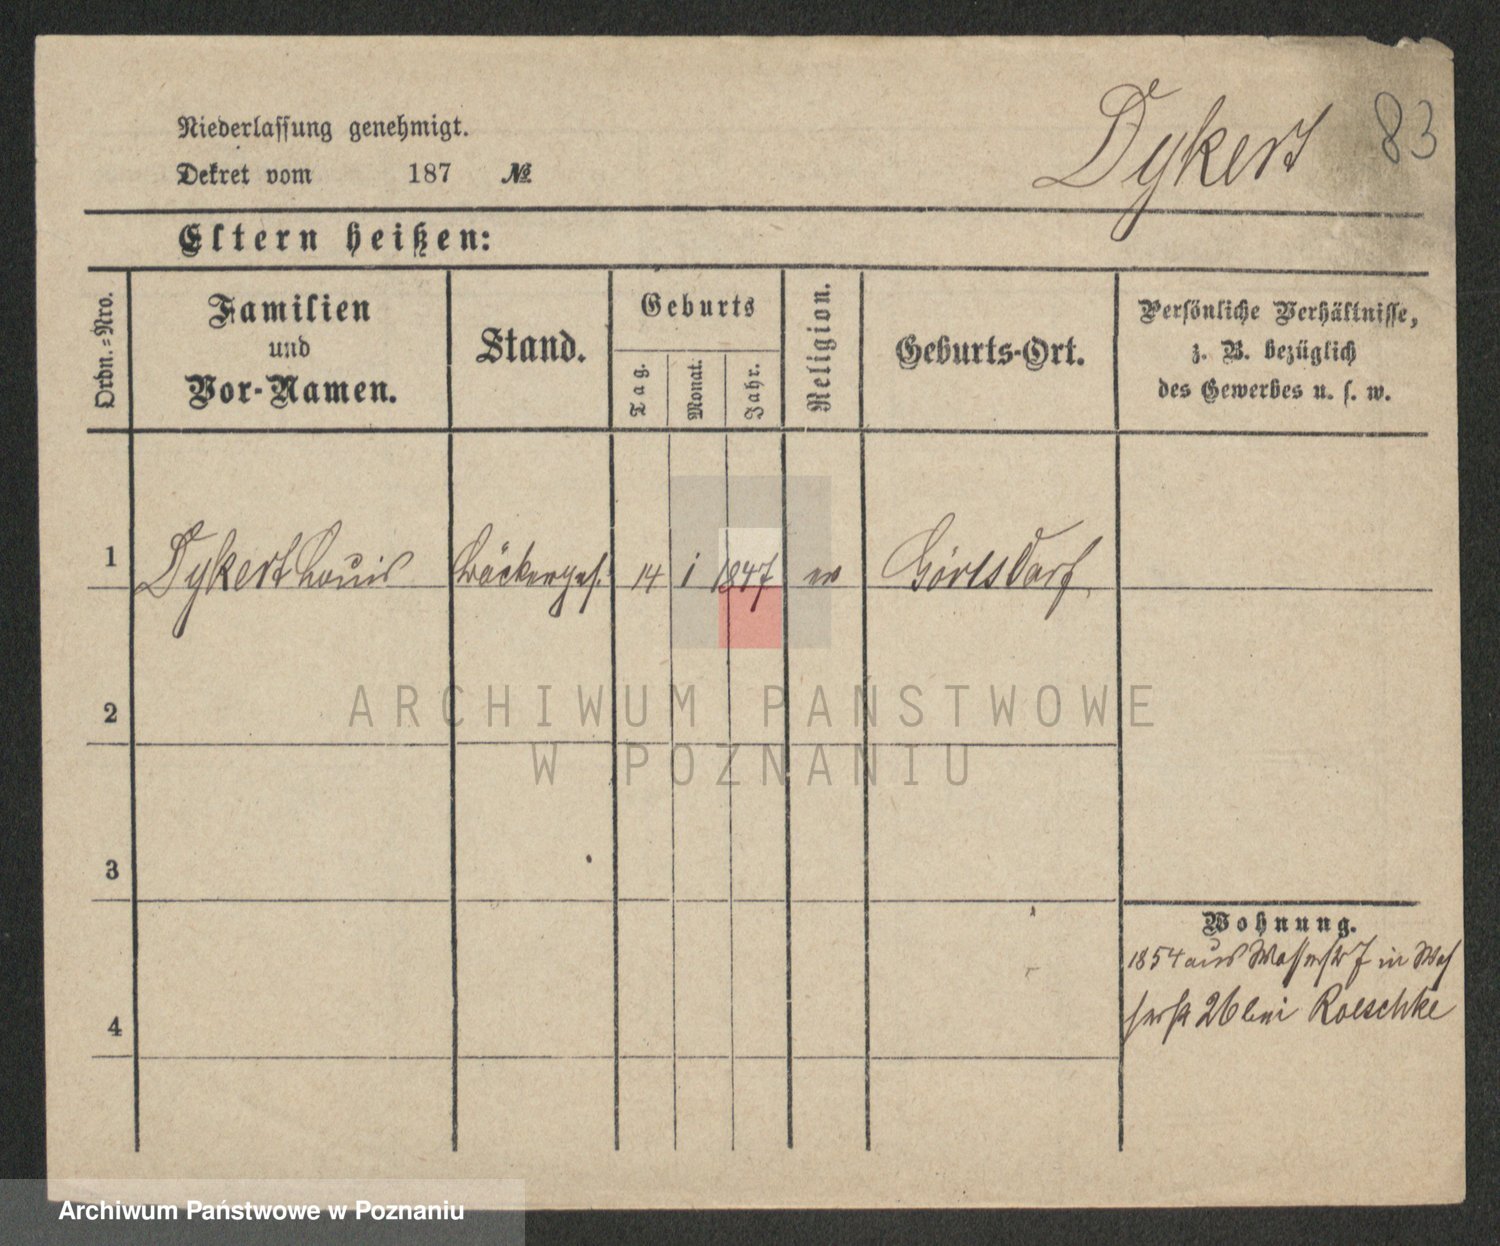 Niederlassung genehmigt.
Dekret vom 187 №
Dykert 83
Eltern heißen:
Ordn.=Nro.
Familien
und
Vor-Namen.
Stand.
Geburts
Tag.
Monat.
Jahr.
Religion.
Geburts-Ort.
Persönliche Verhältnisse,
z. B. bezüglich
des Gewerbes u. s. w.
1 Dykert Louis Bäckerges. 14 1 1847 ev
2
3
4
Wohnung.
1854 aus Wasserstr 7 in Was
serstr 26 bei Roeschke
ARCHIWUM PAŃSTWOWE
W POZNANIU
Archiwum Państwowe w Poznaniu